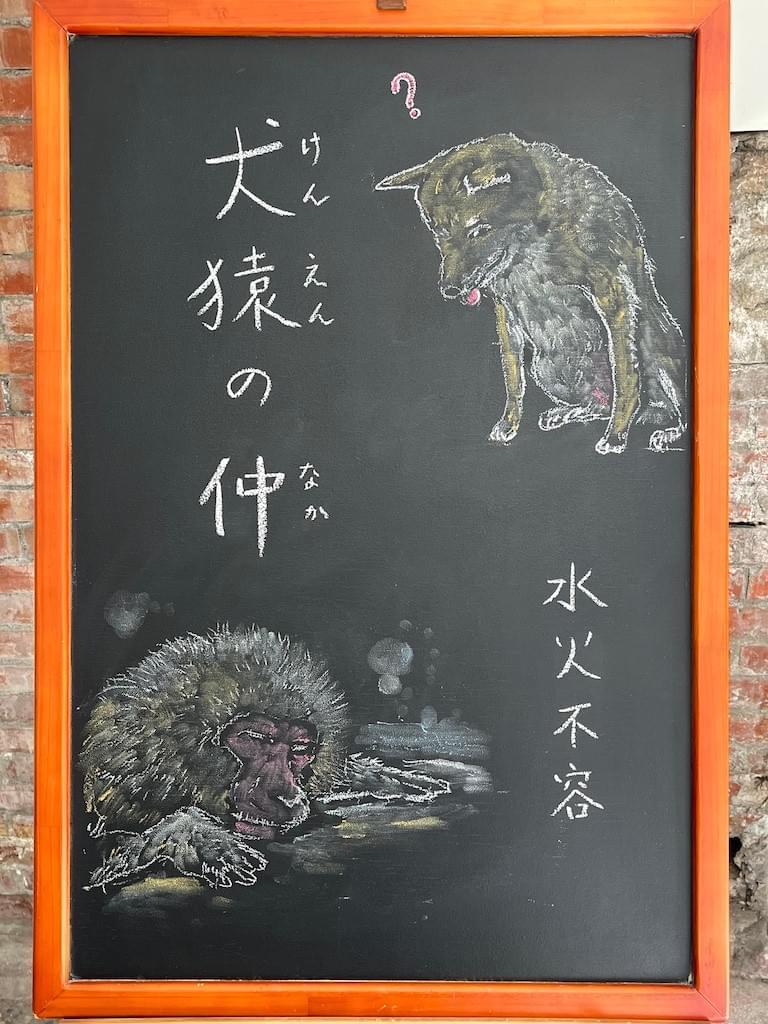 ?
犬猿の仲
けんえん なか
水火不容